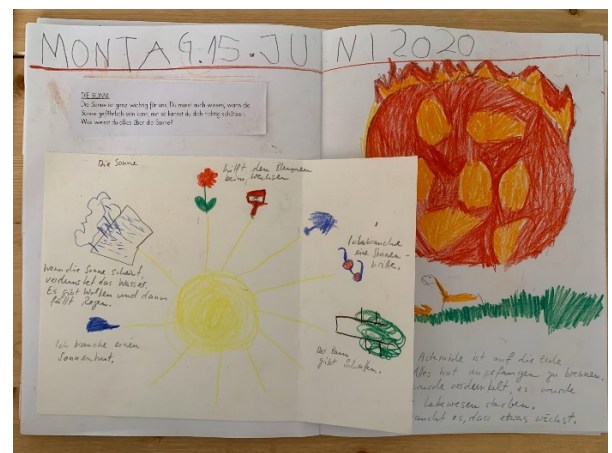 MONTAG.15.JUNI 2020
DIE SONNE
Die Sonne ist ganz wichtig für uns. Du musst auch wissen, wann die
Sonne gefährlich sein kann, nur so kannst du dich richtig schützen.
Was weisst du alles über die Sonne?
Die Sonne
hilft den Blumen
beim wachsen
Ich brauche
eine Sonnen-
brille.
Wenn die Sonne scheint,
verdunstet das Wasser.
Es gibt Wolken und dann
fällt Regen.
Ich brauche einen
Sonnenhut.
Der Baum
gibt Schatten.
Asteroide ist auf die Erde
Alles hat angefangen zu brennen.
wurde verdunkelt, es wurde
Lebewesen starben.
es, dass etwas wächst.